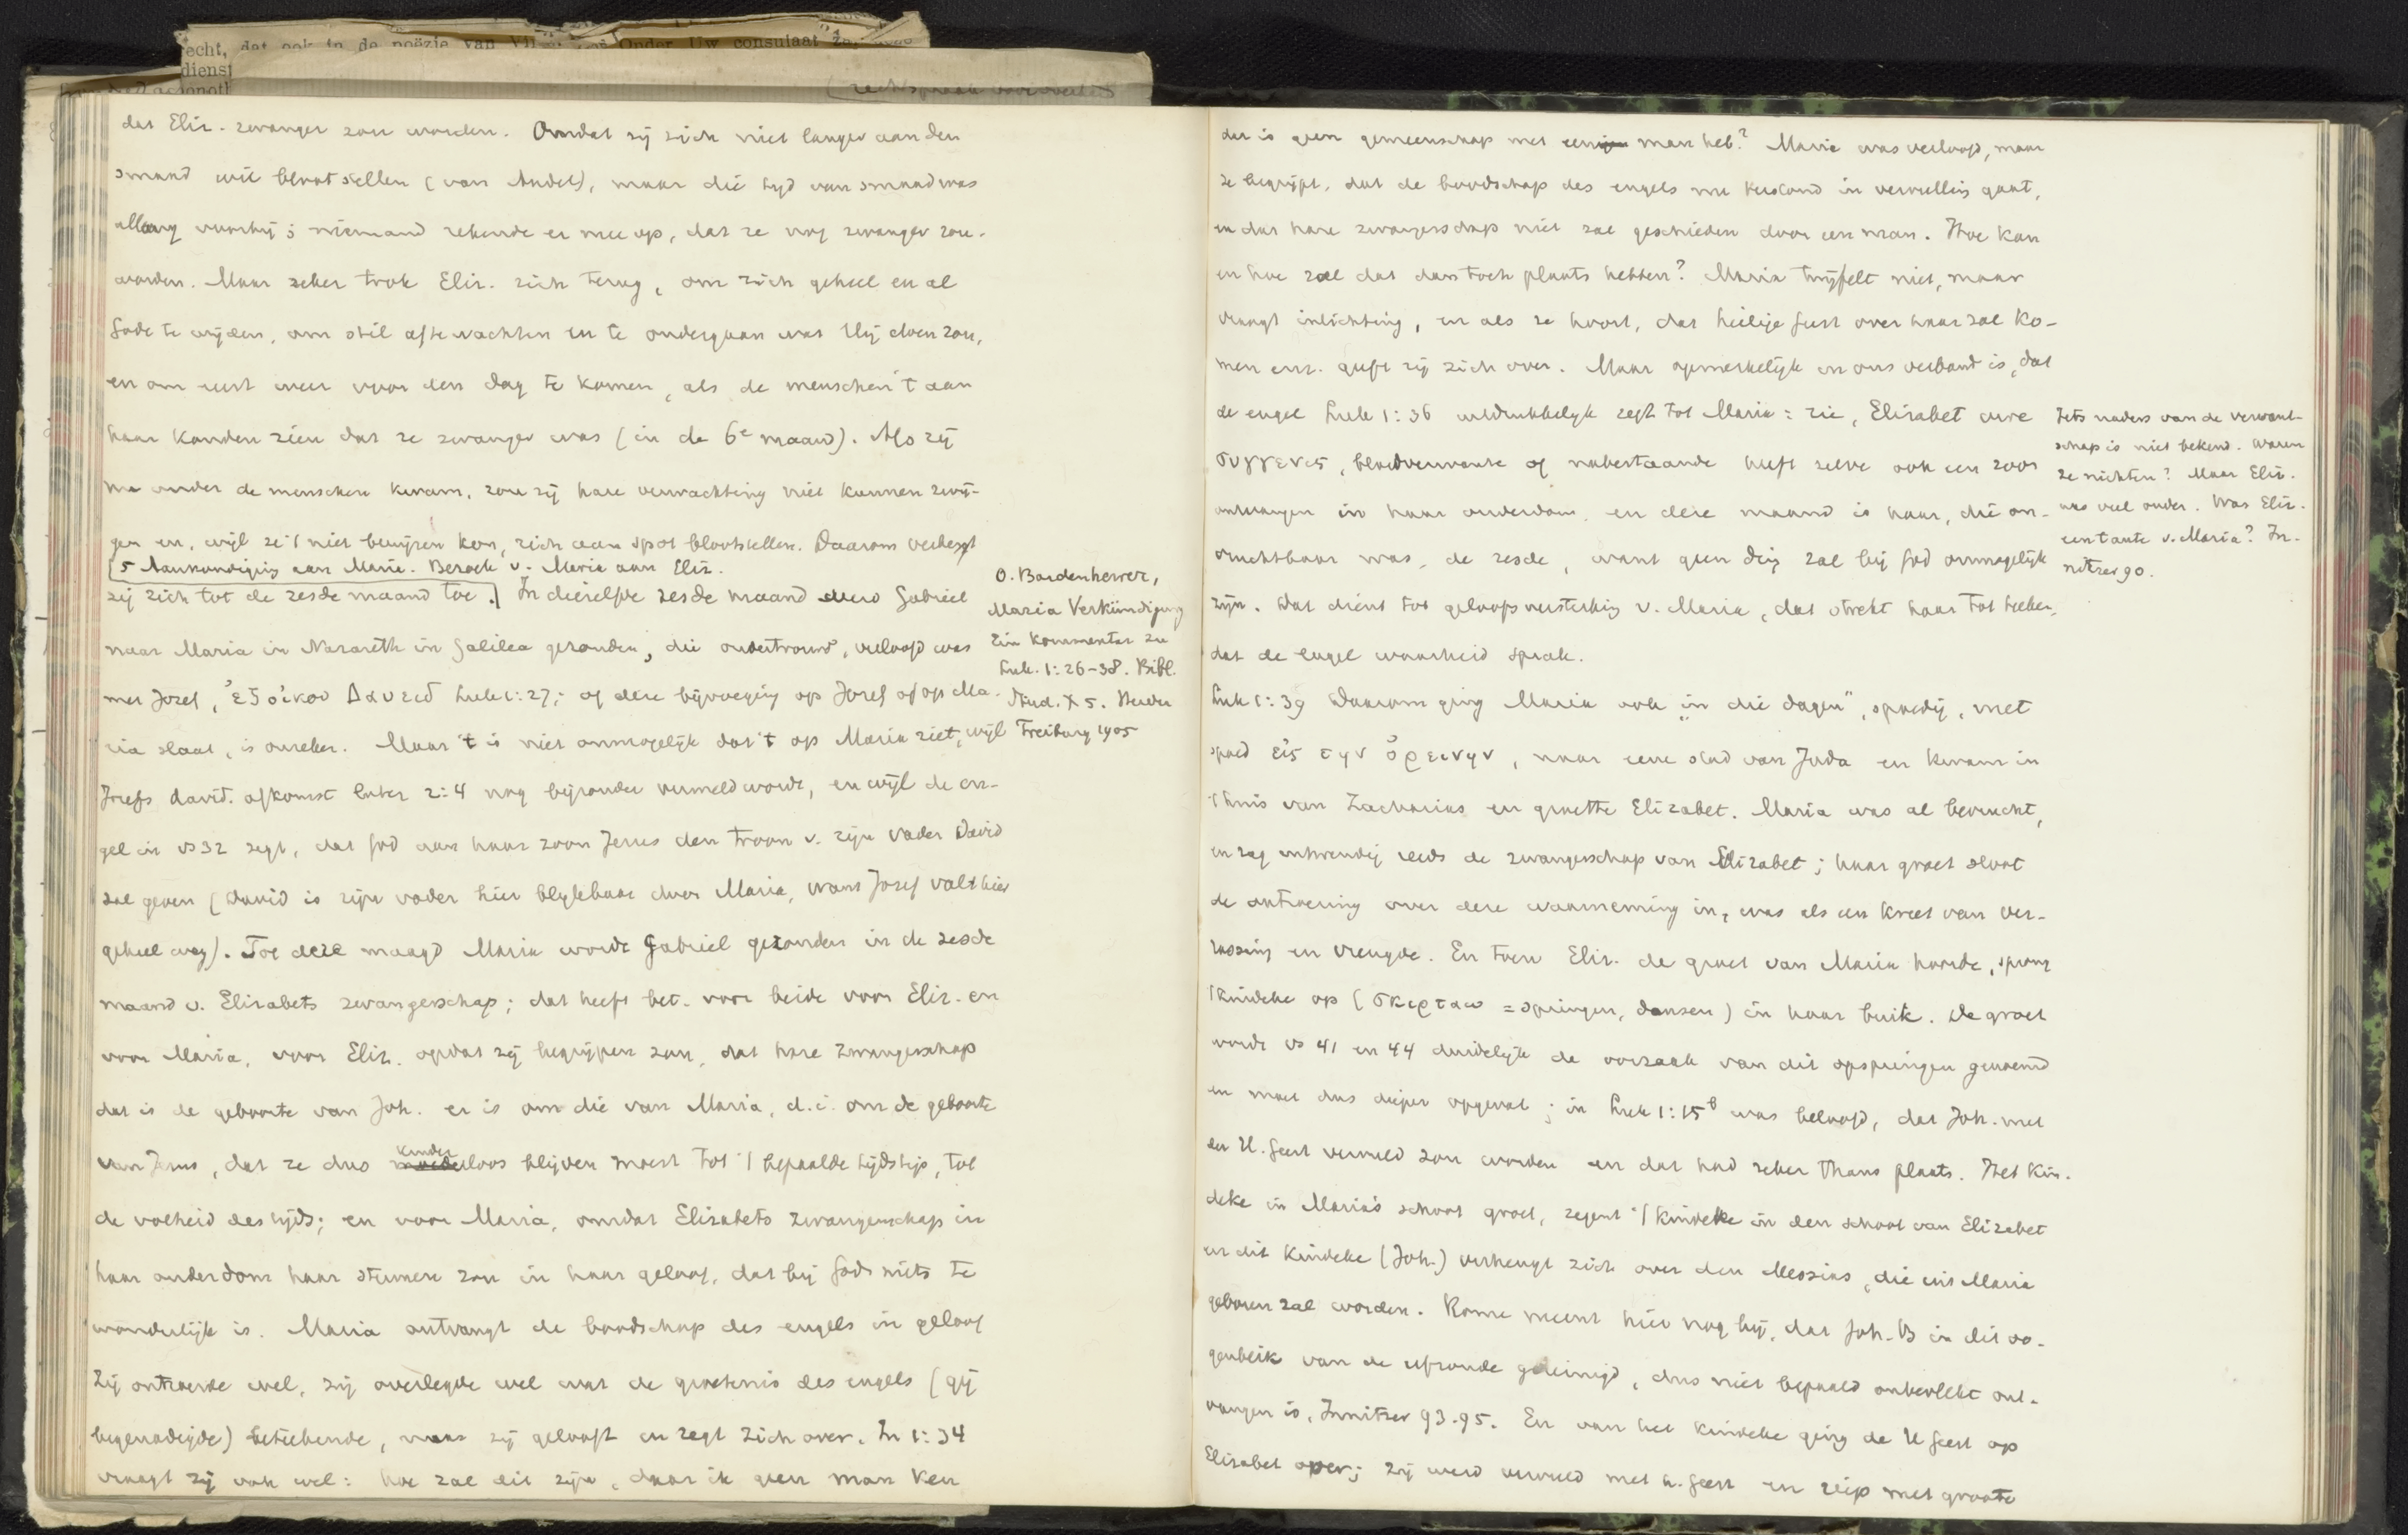 echt, dat ook in de poëzie van Onder Uw consulaat
dienst
dat Eliz. zwanger zou worden. Omdat zij zich niet langer aan den
smaad wil blootstellen (van Andel), maar die tijd van smaad was
allang voorbij; niemand rekende er mee op, dat ze nog zwanger zou
worden. Maar zeker trok Eliz. zich terug, om zich geheel en al
Gode te wijden, om stil af te wachten en te ondergaan wat Hij doen zou,
en om eerst weer voor den dag te komen, als de menschen 't aan
haar konden zien dat ze zwanger was (in de 6e maand). Als zij
onder de menschen kwam, zou zij hare verwachting niet kunnen zwij-
gen en, wijl ze 't niet bewijzen kon, zich aan spot blootstellen. Daarom verbergt
5 Aankondiging aan Maria. Bezoek v. Maria aan Eliz.
zij zich tot de zesde maand toe. In diezelfde zesde maand werd Gabriel
naar Maria in Nazareth in Galilea gezonden, die ondertrouwd, verloofd was
met Jozef, ἐξ οἰκου Δαυειδ Luk 1:27; of deze bijvoeging op Jozef of op Ma-
ria slaat, is onzeker. Maar 't is niet onmogelijk dat 't op Maria ziet, wijl
Jozefs david. afkomst later 2:4 nog bijzonder vermeld wordt, en wijl de en-
gel in vs 32 zegt, dat God aan haar zoon Jezus den troon v. zijn vader David
zal geven (David is zijn vader hier blijkbaar door Maria, want Jozef valt hier
geheel weg). Tot deze maagd Maria wordt Gabriel gezonden in de zesde
maand v. Elizabets zwangerschap; dat heeft bet. voor beide voor Eliz. en
voor Maria, voor Eliz. opdat zij begrijpen zou, dat hare zwangerschap
dat is de geboorte van Joh. er is om die van Maria, d.i. om de geboorte
van Jezus, dat ze dus kinderloos blijven moest tot 't bepaalde tijdstip, tot
de volheid des tijds; en voor Maria, omdat Elizabets zwangerschap in
haar ouderdom haar steunen zou in haar geloof, dat bij God niets te
wonderlijk is. Maria ontvangt de boodschap des engels in geloof
Zij ontroerde wel, zij overlegde wel wat de groetenis des engels (gij
begenadigde) beteekende, maar zij gelooft en zegt zich over. In 1:34
vraagt zij ook wel: hoe zal dit zijn, daar ik geen man ken
O. Bardenhewer,
Maria Verkündigung
Ein Kommentar zu
Luk. 1:26-38. Bibl.
Stud. X 5. Herder
Freiburg 1905
dat is geen gemeenschap met een man heb? Maria was verloofd, maar
ze begrijpt, dat de boodschap des engels nu terstond in vervulling gaat,
en dat hare zwangerschap niet zal geschieden door een man. Hoe kan
en hoe zal dat dan toch plaats hebben? Maria twijfelt niet, maar
vraagt inlichting, en als ze hoort, dat heilige Geest over haar zal ko-
men enz. geeft zij zich over. Maar opmerkelijk in ons verband is, dat
de engel Luk 1:36 uitdrukkelijk zegt tot Maria: zie, Elizabet uwe
συγγενις, bloedverwante of nabestaande heeft zelve ook een zoon
ontvangen in haar ouderdom, en deze maand is haar, die on-
vruchtbaar was, de zesde, want geen ding zal bij God onmogelijk
zijn. Dat dient tot geloofsversterking v. Maria, dat strekt haar tot teeken,
dat de engel waarheid sprak.
Luk 1:39 Daarom ging Maria ook "in die dagen", spoedig, met
spoed εἰς την ὀρεινην, naar eene stad van Juda en kwam in
't huis van Zacharias en groette Elizabet. Maria was al bevrucht,
en zag inwendig reeds de zwangerschap van Elizabet; haar groet sloot
de ontroering over deze waarneming in, was als een kreet van ver-
rassing en vreugde. En toen Eliz. de groet van Maria hoorde, sprong
't kindeke op (σκιρταω = springen, dansen) in haar buik. De groet
wordt vs 41 en 44 duidelijk de oorzaak van dit opspringen genoemd
en moet dus dieper opgevat; in Luk 1:15b was beloofd, dat Joh. met
den H. Geest vervuld zou worden en dat had zeker thans plaats. Het kin-
deke in Maria's schoot groet, zegent 't kindeke in den schoot van Elizabet
en dit kindeke (Joh.) verheugt zich over den Messias, die uit Maria
geboren zal worden. Rome meent hier nog bij, dat Joh. B in dit oo-
genblik van de erfzonde gereinigd, dus niet bepaald onbevlekt ont-
vangen is, Innitzer 93-95. En van het kindeke ging de H Geest op
Elizabet over; zij werd vervuld met h. Geest en riep met groote
Iets naders van de verwant-
schap is niet bekend. Waren
ze nichten? Maar Eliz.
was veel ouder. Was Eliz.
een tante v. Maria? In-
nitzer 90.